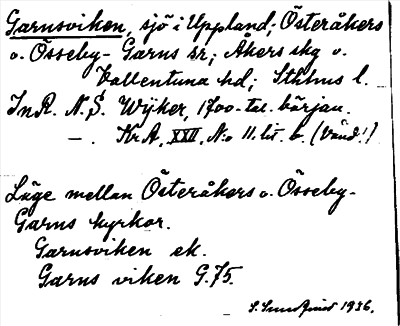 Garnsviken, sjö i Uppland; Österåkers
o. Össeby-Garns sr; Åkers skg o.
Vallentuna hd; Sthlms l.
InR. N. S. Wijker, 1700-tal. början.
—. Kr A, XXII, N:o 11. lit. b. (Vänd!)
Läge mellan Österåkers o. Össeby-
Garns kyrkor.
Garnsviken ek.
Garns viken G. 75.
S. Sundqvist 1936.